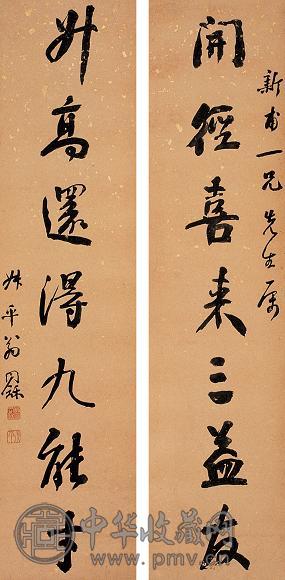 新甫一兄先生属
開徑喜來三益友
升高還得九能才
叔平翁同龢
中华收藏网
www.pmv.cn